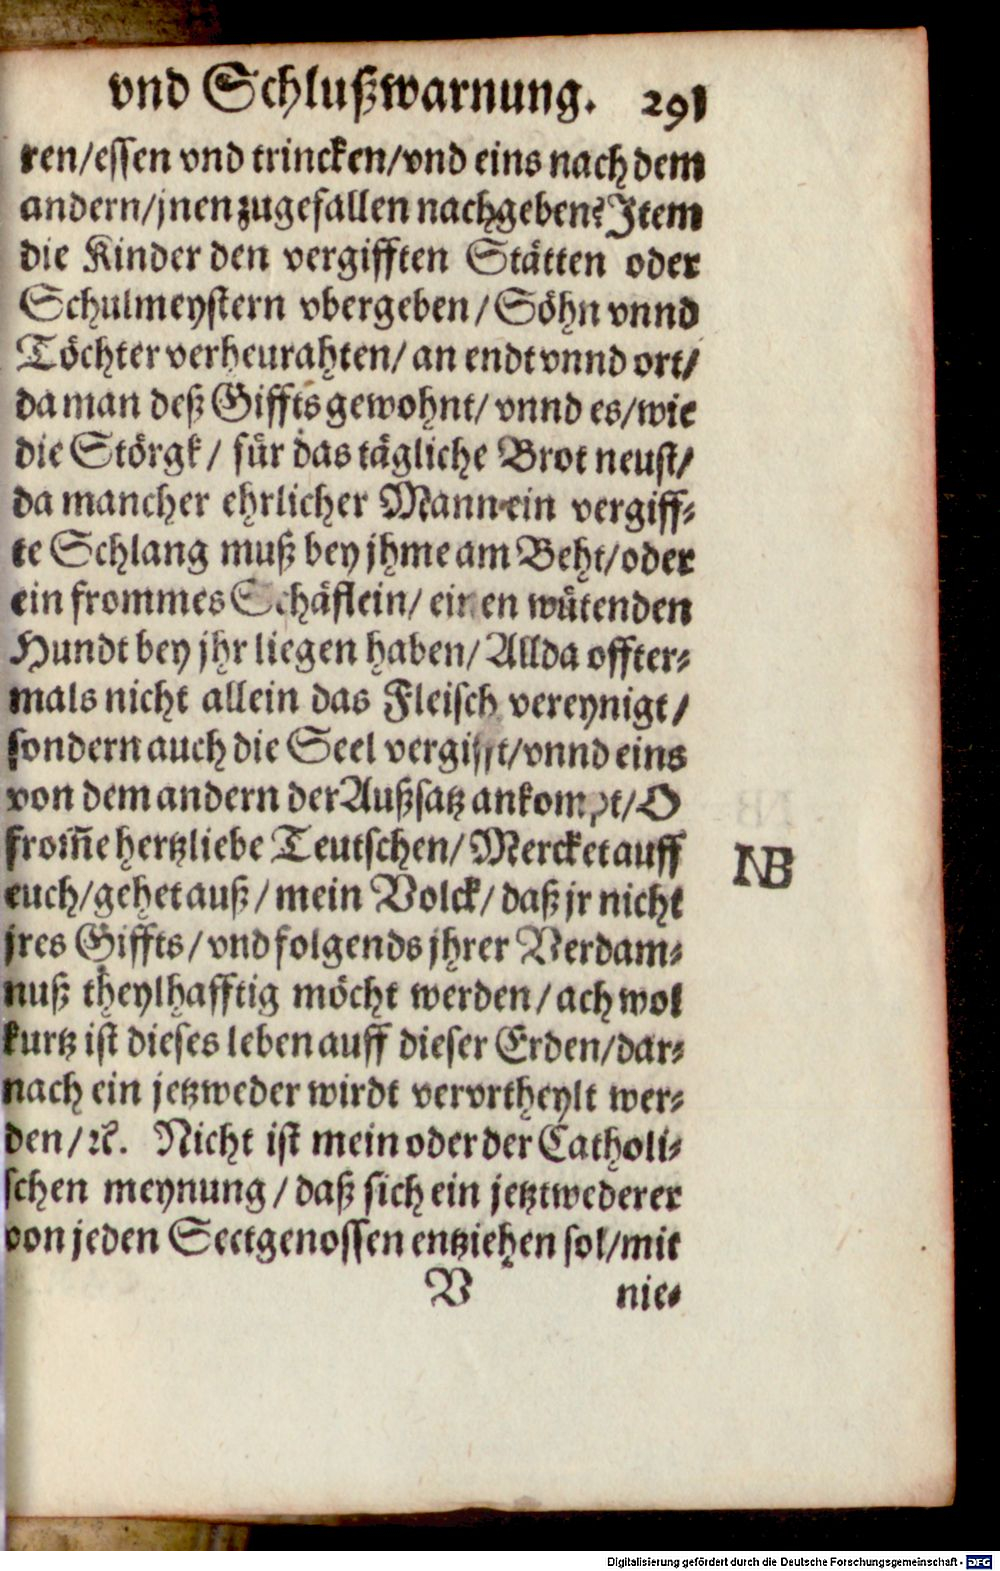 vnd Schlußwarnung. 291
ren/essen vnd trincken/vnd eins nach dem
andern/jnen zugefallen nachgeben? Item
die Kinder den vergifften Stätten oder
Schulmeystern vbergeben/Söhn vnnd
Töchter verheurahten/an endt vnnd ort/
da man deß Giffts gewohnt/vnnd es/wie
die Störgk/für das tägliche Brot neust/
da mancher ehrlicher Mann ein vergiff-
te Schlang muß bey jhme am Beht/oder
ein frommes Schäflein/einen wütenden
Hundt bey jhr liegen haben/Allda offter-
mals nicht allein das Fleisch vereynigt/
sondern auch die Seel vergifft/vnnd eins
von dem andern der Außsatz ankompt/O
from̃e hertzliebe Teutschen/Mercket auff
NB
euch/gehet auß/mein Volck/daß jr nicht
jres Giffts/vnd folgends jhrer Verdam-
nuß theylhafftig möcht werden/ach wol
kurtz ist dieses leben auff dieser Erden/dar-
nach ein jetzweder wirdt vervrtheylt wer-
den/ꝛc. Nicht ist mein oder der Catholi-
schen meynung/daß sich ein jetztwederer
von jeden Sectgenossen entziehen sol/mit
V nie-
Digitalisierung gefördert durch die Deutsche Forschungsgemeinschaft - DFG